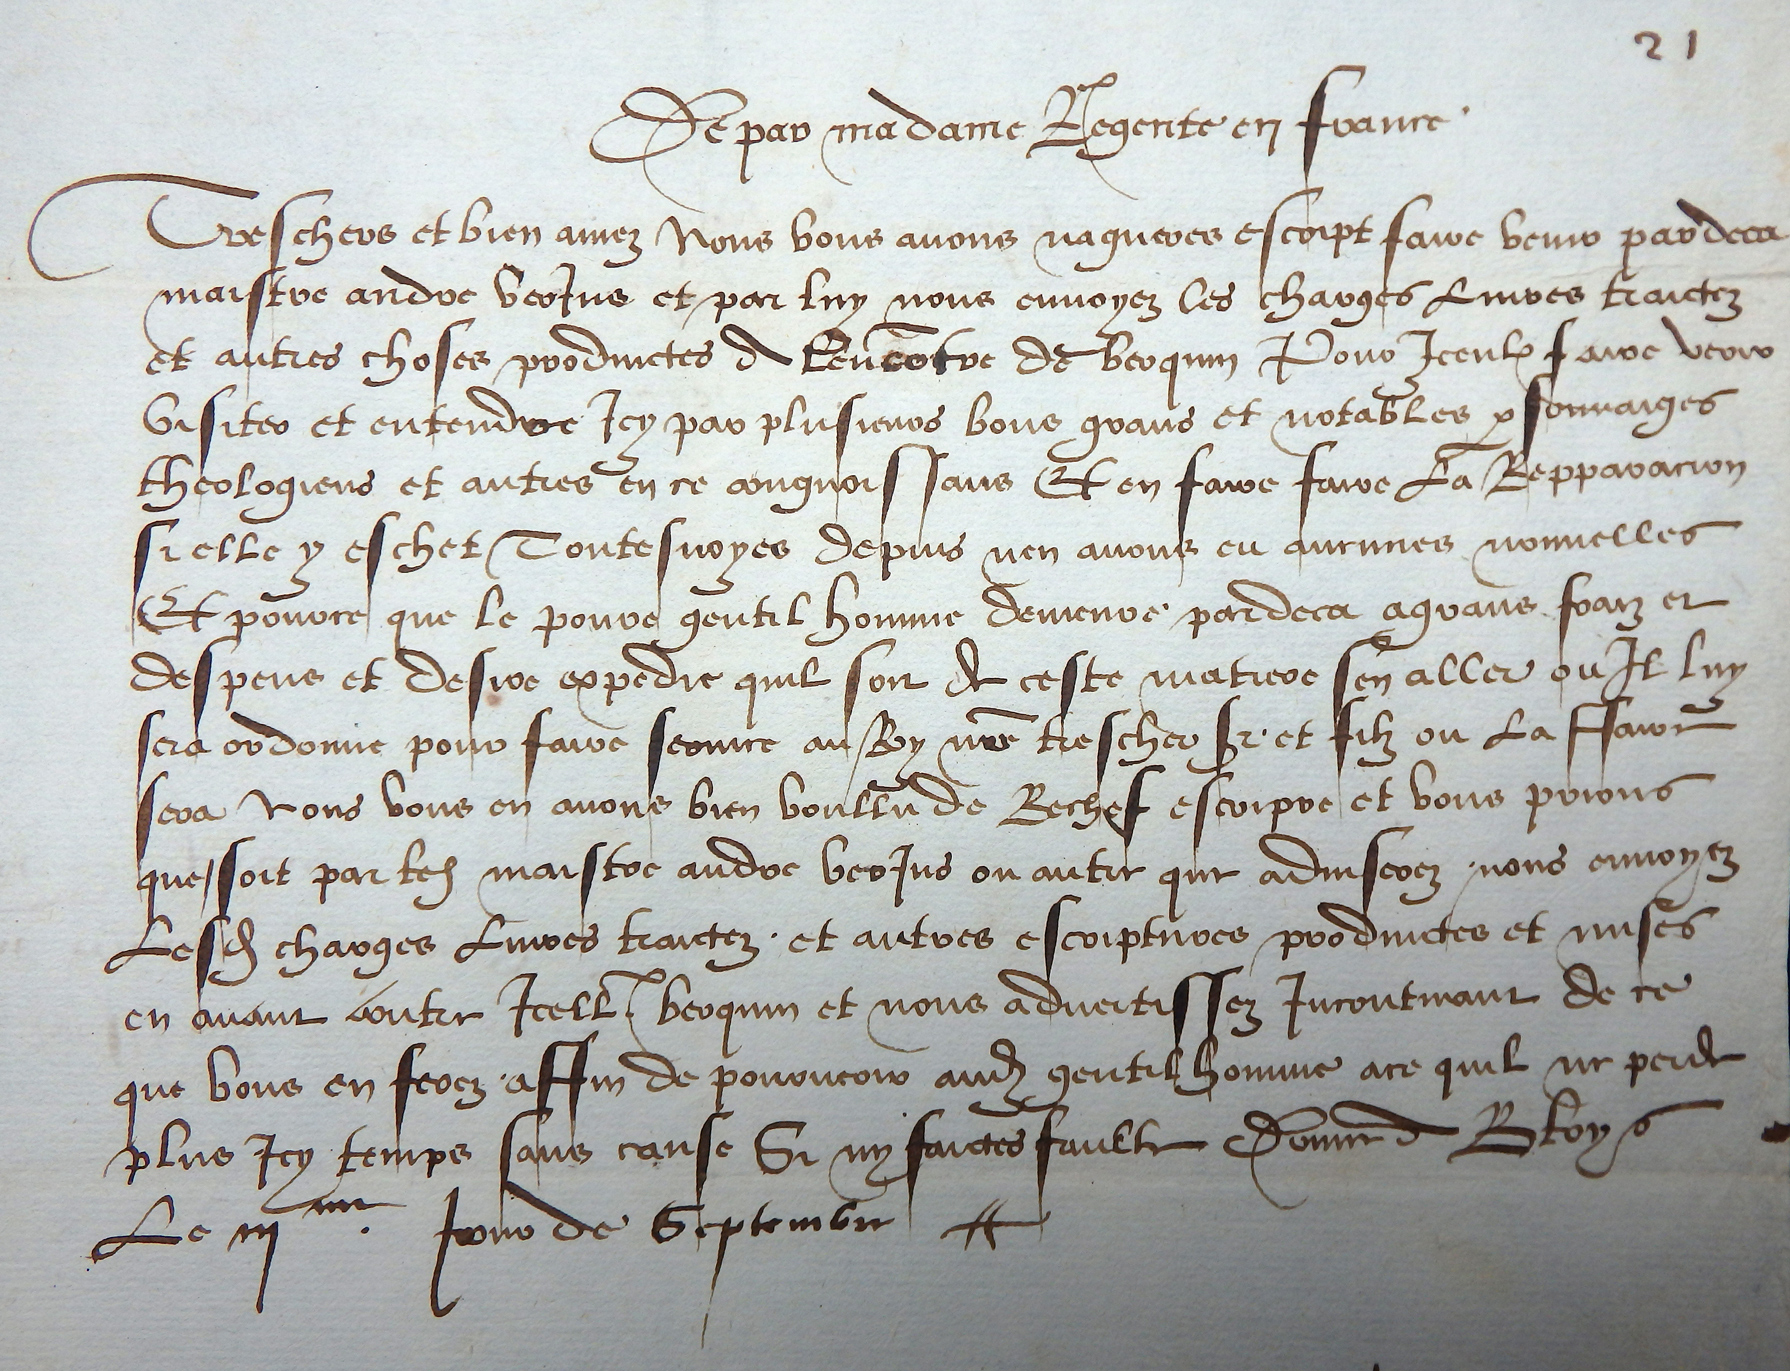 21
De par madame Regente en france
Treschers et bien amez Nous vous avons nagueres escript faire venir par deca
maistre andre verJus et par luy nous envoyez les charges Livres traictez
et autres choses produictes a Lencontre de berquin Pour Iceulx faire veoir
visiter et entendre Icy par plusieurs bons grans et notables personnaiges
theologiens et autres en ce congnoissans Et en faire faire La Repparacion
si elle y eschet Toutesvoyes depuis nen avons eu aucunes nouvelles
Et pource que le povre gentil homme demeure par deca a grans fraiz et
despens et desire expedie quil soit de ceste matiere sen aller ou Il luy
sera ordonne pour faire service au Roy nre trescher sr et filz ou La ffaire
sera Nous vous en avons bien voullu de Rechef escripre et vous prions
que soit par led maistre andre verJus ou autre que adviserez nous envoyez
Lesd charges Livres traictez et autres escriptures produictes et mises
en avant contre Icell berquin et nous advertissez Incontinant de ce
que vous en ferez affin de pourveoir aud gentilhomme a ce quil ne perde
plus Icy temps sans cause Si ny faictes faulte Donne a Bloys
Le iij me Jour de Septembre